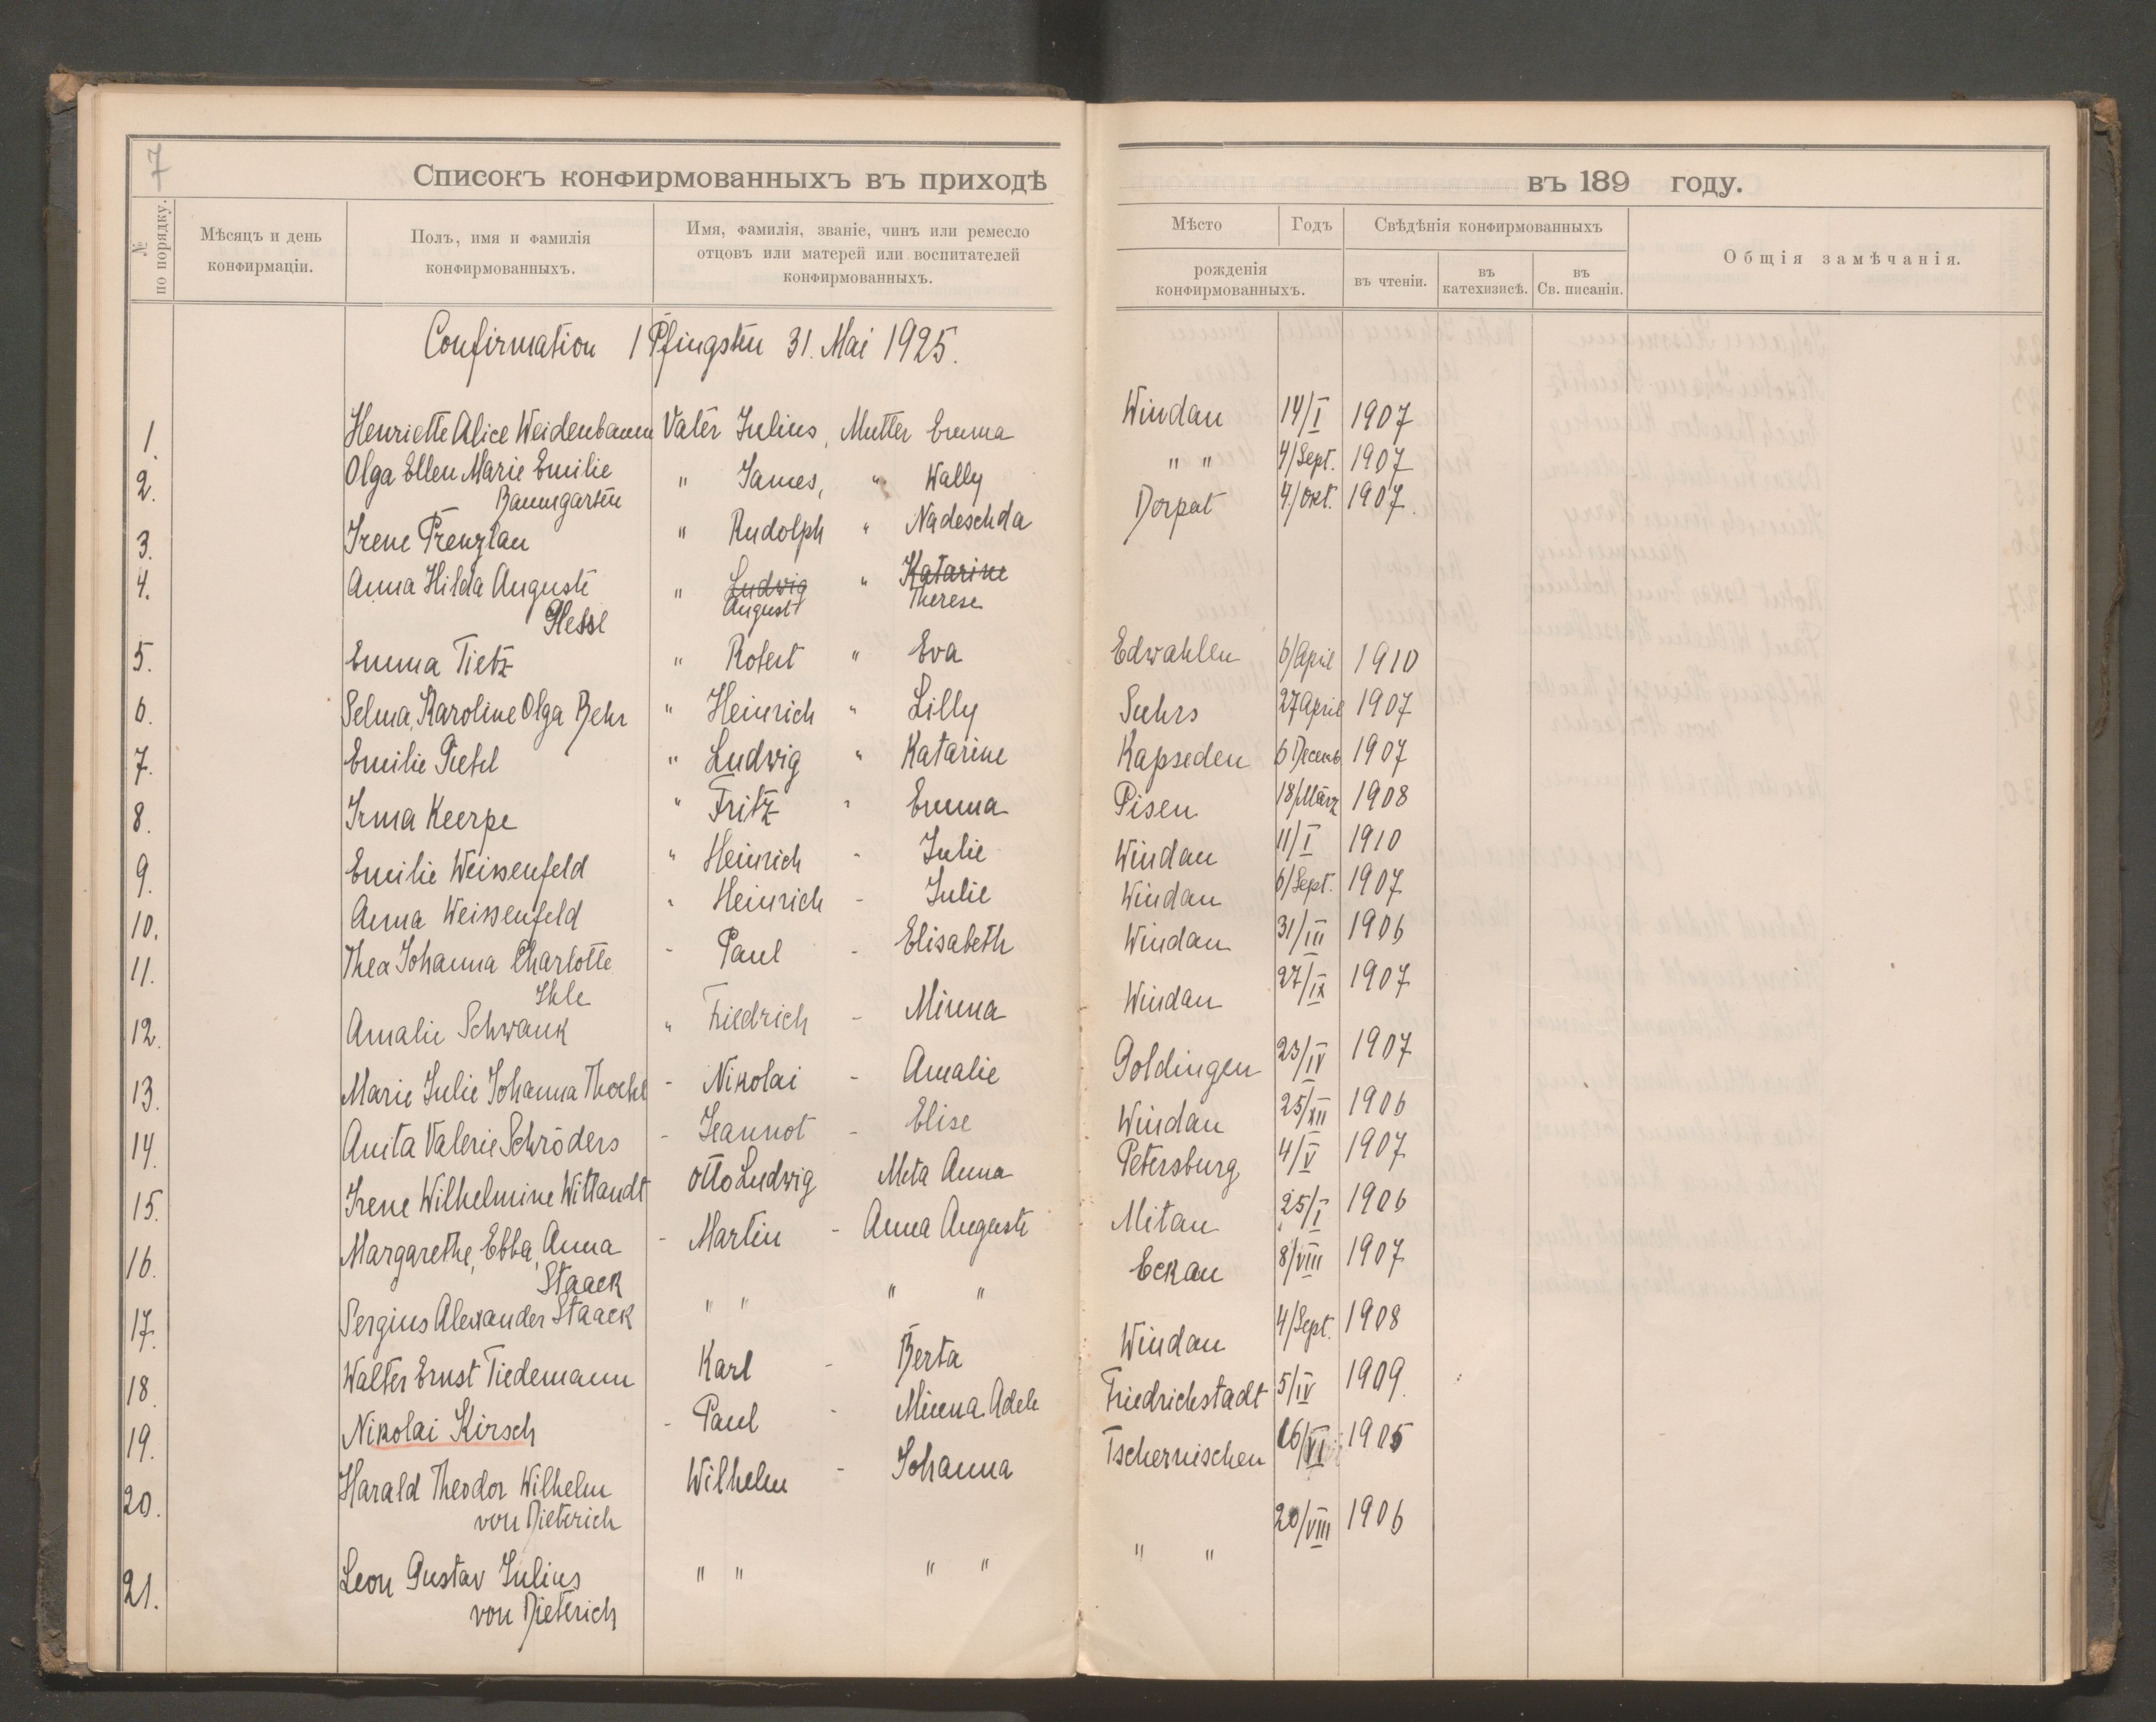 7
Списокъ конфирмованныхъ въ приходѣ
№ по порядку.
Мѣсяцъ и день
конфирмаціи.
Полъ, имя и фамилія
конфирмованныхъ.
Имя, фамилія, званіе, чинъ или ремесло
отцовъ или матерей или воспитателей
конфирмованныхъ.
Confirmation 1 Pfingsten 31. Mai 1925.
1. Henriette Alice Weidenbaum Vater Julius, Mutter Emma
2. Olga Ellen Marie Emilie " James, " Wally
Baumgarten
3. Irene Prenzlau " Rudolph " Nadeschda
4. Anna Hilda Auguste " Ludwig " Katarine
August Therese
Hesse
5. Emma Tietz " Robert " Eva
6. Selma, Karoline Olga Behr " Heinrich " Lilly
7. Emilie " Ludwig " Katarine
8. Irma Keerpe " Fritz " Emma
9. Emilie Weissenfeld " Heinrich - Julie
10. Anna Weissenfeld " Heinrich - Julie
11. Thea Johanna Charlotte - Paul - Elisabeth
Ihle
12. Amalie Schwank " Friedrich - Minna
13. Marie Julie Johanna - Nikolai - Amalie
14. Anita Valerie Schröders - Jeannot - Elise
15. Irene Wilhelmine Wittandt Otto Ludwig Meta Anna
16. Margarethe, Ebba, Anna - Martin - Anna Auguste
Staack
17. Sergius Alexander Staack " " " "
18. Walter Ernst Tiedemann Karl - Berta
19. Nikolai Kirsch - Paul - Minna Adele
20. Harald Theodor Wilhelm Wilhelm - Johanna
von Dieterich
21. Leon Gustav Julius " " " "
von Dieterich
въ 189 году.
Мѣсто
Годъ
рожденія
конфирмованныхъ.
Свѣдѣнія конфирмованныхъ
въ чтеніи.
въ
катехизисѣ.
въ
Св. писаніи.
Общія замѣчанія.
Windau 14/I 1907
" " 4/Sept. 1907
Dorpat 4/Okt. 1907
Edwahlen 6/April 1910
Suhrs 27 April 1907
Kapseden 6 Decemb. 1907
Pisen 18/März 1908
Windau 11/I 1910
Windau 6/Sept. 1907
Windau 31/III 1906
Windau 27/IX 1907
Goldingen 23/IV 1907
Windau 25/XII 1906
Petersburg 4/V 1907
Mitau 25/I 1906
Eckau 8/VIII 1907
Windau 4/Sept. 1908
Friedrichstadt 5/IV 1909.
Tschernischen 16/VI 1905
" " 20/VIII 1906